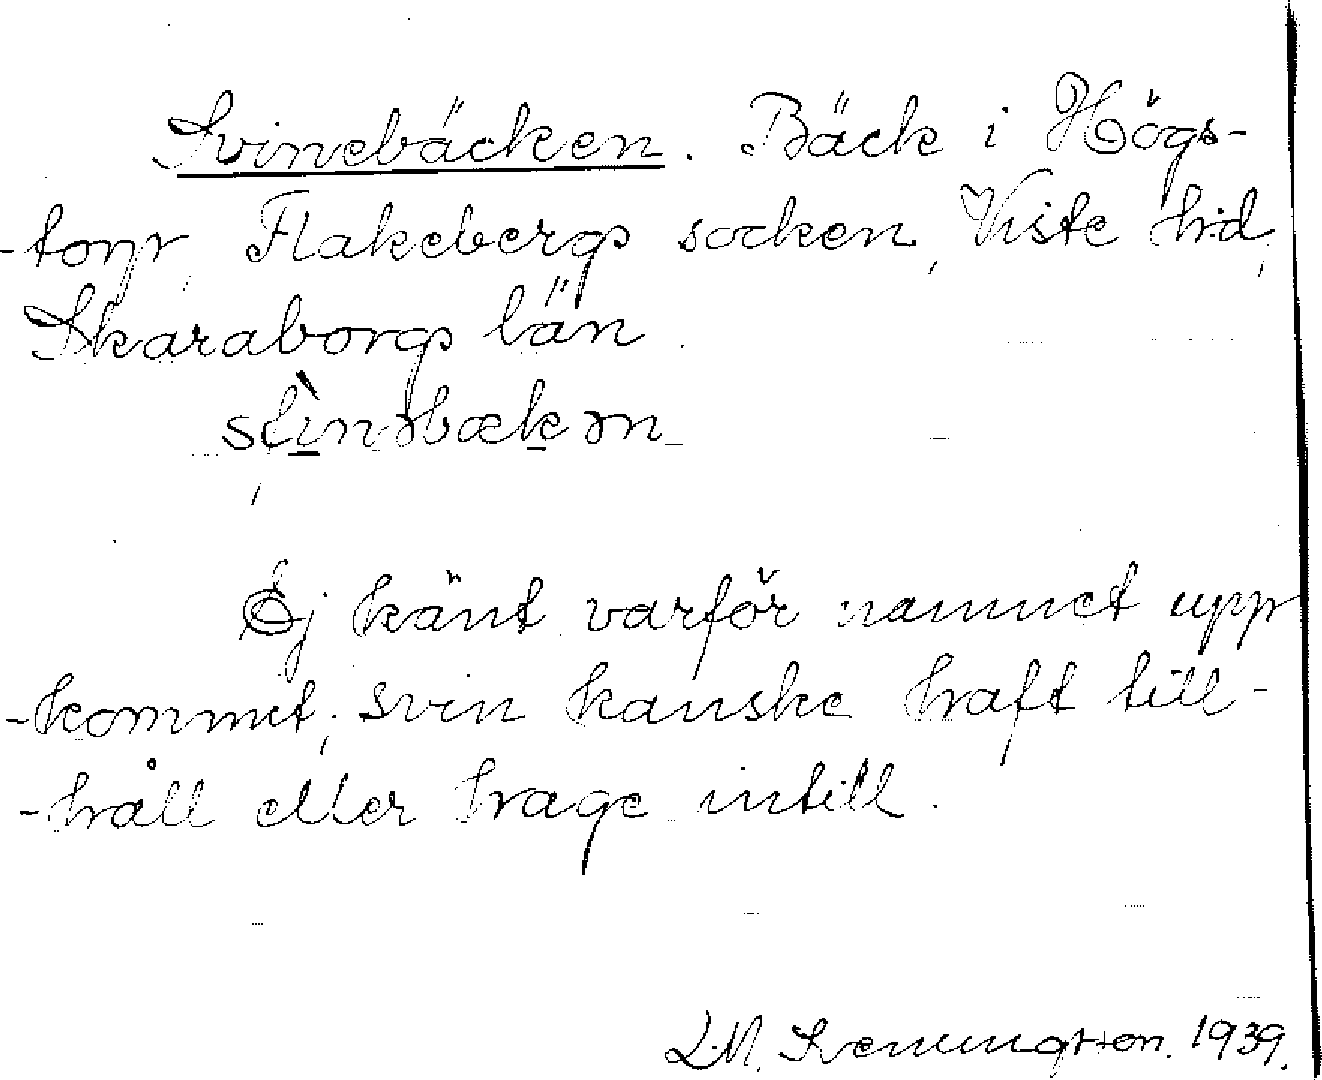 Svinebäcken. Bäck i Högs-
-torp, Flakebergs socken, Viste hd,
Skaraborgs län.
Ej känt varför namnet upp
-kommet, svin kanske haft till-
-håll eller hage intill.
L.M. Svenungsson. 1939.